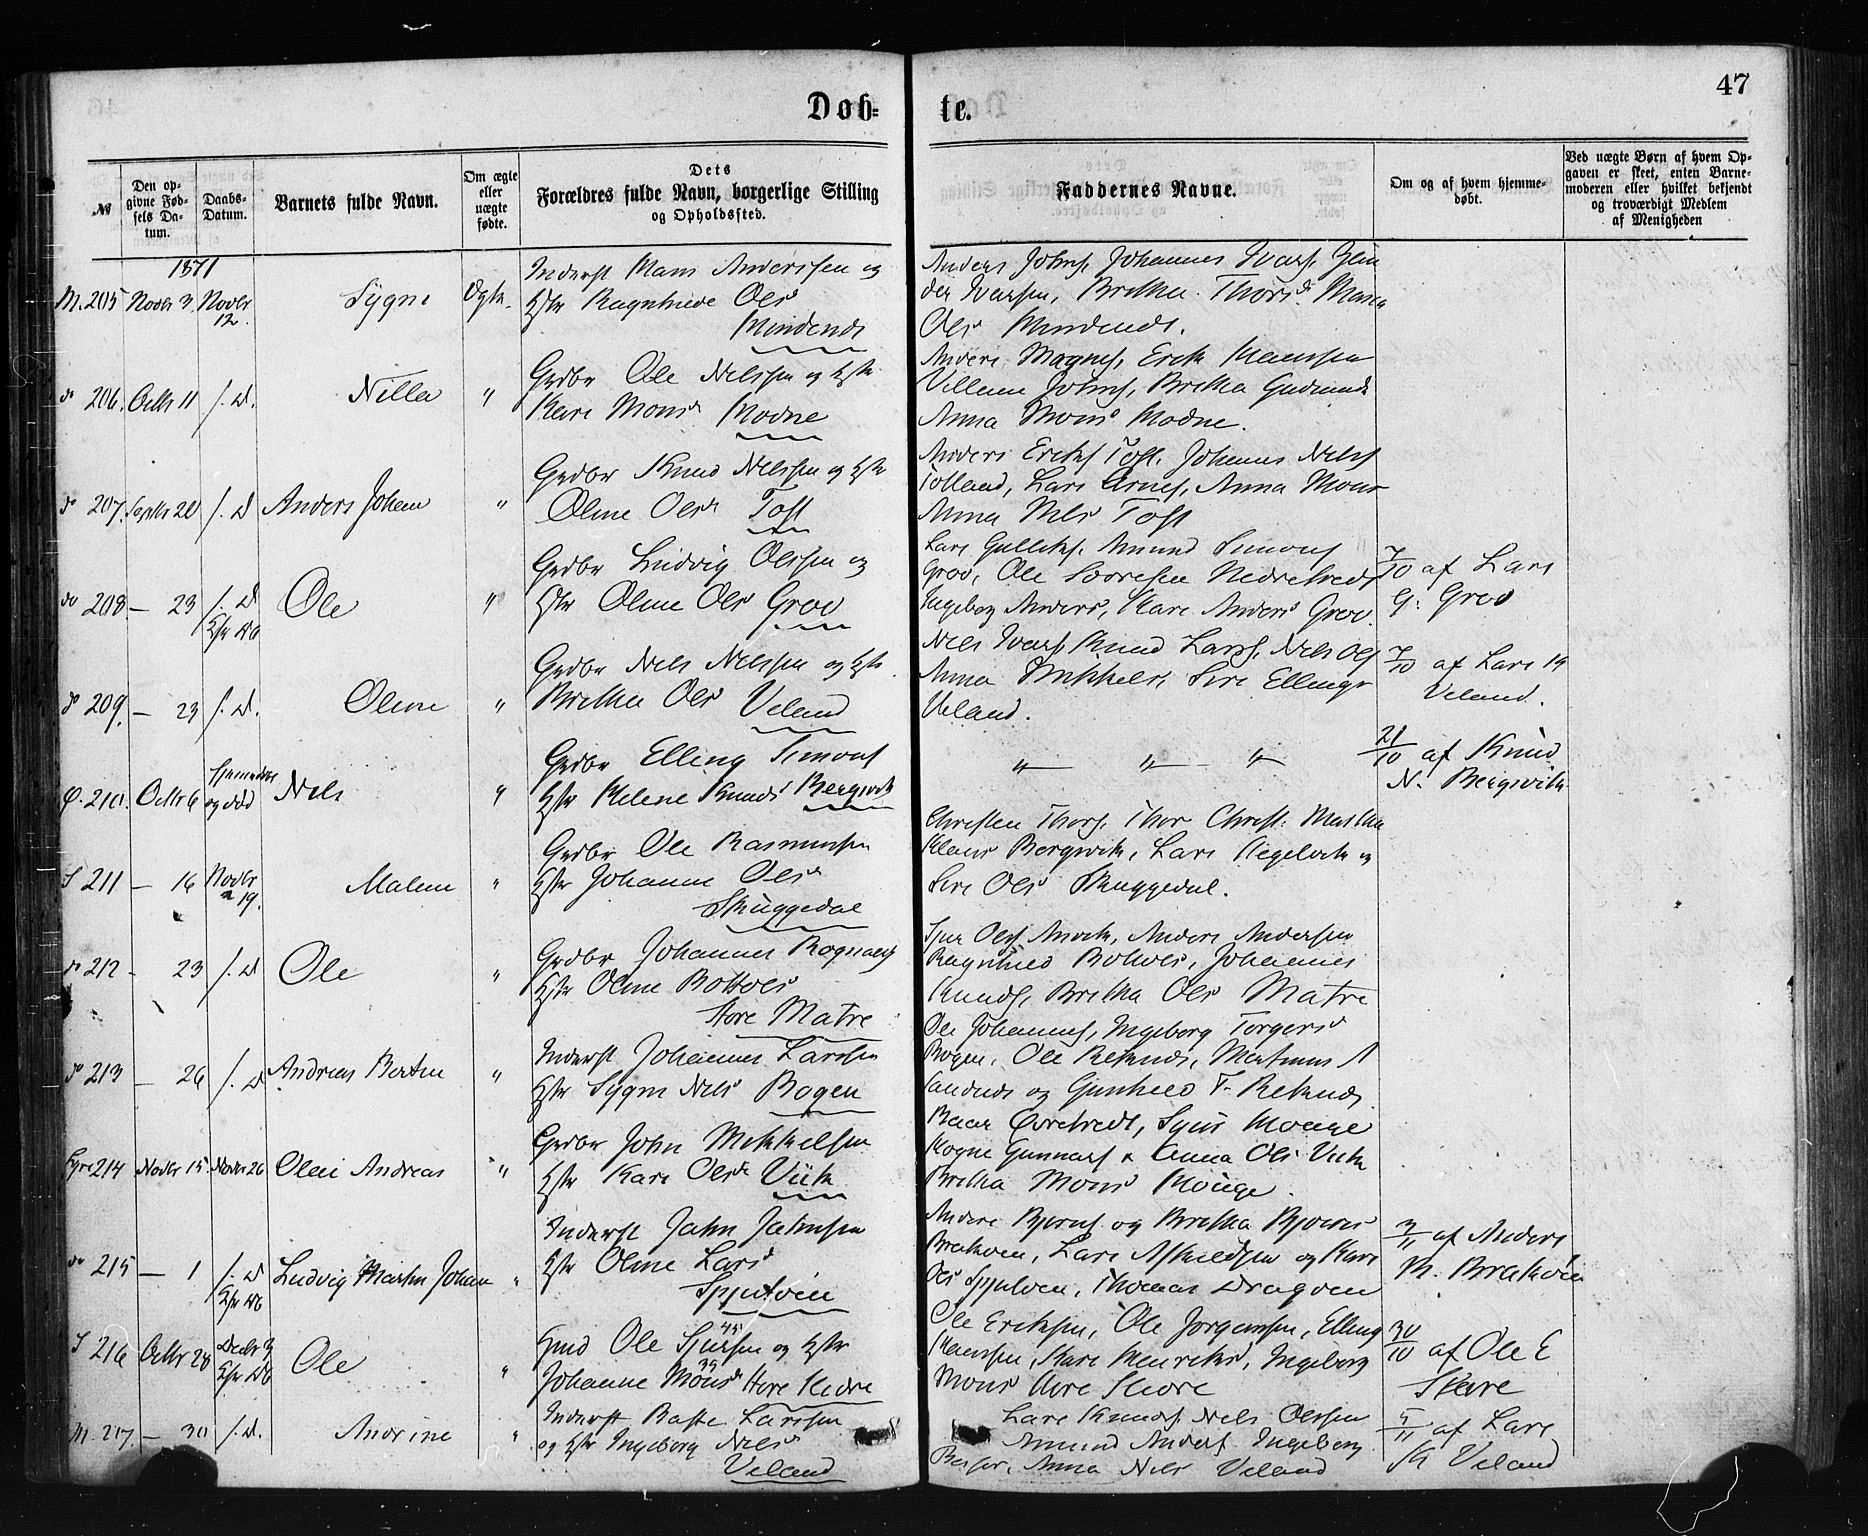 47
Døb-
te.
№
Den op-
givne Fød-
sels Da-
tum.
Daabs-
Datum.
Barnets fulde Navn.
Om ægte
eller
uægte
fødte.
Dets
Forældres fulde Navn, borgerlige Stilling
og Opholdssted.
Faddernes Navne.
Om og af hvem hjemme-
døbt.
Ved uægte Børn af hvem Op-
gaven er skeet, enten Barne-
moderen eller hvilket bekjendt
og troværdigt Medlem
af Menigheden
1871
M. 205 Novbr 3. Novbr 12. Sygni Ægte.
Inderst Mans Anderssen og
Hstr Ragnhilde Olsd
Mindends
Anders Johns. Johannes Ivars.
Ivarsen, Britha Thors Maria
Ols Mindends.
do 206. Octbr 11 s. D. Nilla "
Grdbr Ole Nilssen og Hstr
Kari Monsd Modne
Anders Magnes. Erik
Johns. Britha Gudmunds
Anna Mons Modne.
do 207. Septbr 20 s. D Anders Johan "
Grdbr Knud Nilssen og Hstr
Oline Olsdr Toft
Anders Eriks Toft. Johannes Nels
Tolland, Lars Arnes. Anna Mons
Anna Nils Toft
do 208. — 23 s. D Ksr Db Ole "
Grdbr Ludvig Olssen og
Hstr Oline Ols Grov
Lars Gulleiks. Amund Simons
Grov, Ole
Ingeborg Anders, Kari Anders Grov.
7/10 af Lars
G: Grov
do 209. — 23 s. D. Oline "
Grdbr Nils Nelssen og Hstr
Britha Ols Veland
Nils Ivars. Knud Larss. Nils Ols
Anna Mikkels, Siri Ellings
Veland.
7/10 af Lars
Veland.
Ø. 210. Octbr 6 og død Nils "
Grdbr Elling Simons
Hstr Helene Knuds Bergsvik
" " "
21/10 af Knud
N. Bergsvik
S 211 — 16 Novbr 19. Malene "
Grdbr Ole Rasmussen
Hstr Johanne Olsd
Skuggedal
Christen Thors. Thor Christ: Martha
Klaus Bergsvik, Lars og
Siri Ols Skuggedal.
do 212 - 23 s. D Ole "
Grdbr Johannes Rognald
Hstr Oline Bottols
Store Matre
Ols Anvik, Anders Andersen
Ragnhild Botols, Johannes
Knuds, Britha Ols Matre
do 213 — 26 s. D Andreas Bertin "
Inderst Johannes Larssen
Hstr Sygni Nils Bogen
Ole Johannes, Ingeborg Torgersd
Bogen, Ole
og Gunhild T.
Fyre 214 Novbr 15. Novbr 26 Olui Andreas "
Grdbr John Mikkelsen
Hstr Kari Olsdr Viik
Mouge
Rogne Gunnars & Anna Ols Viik
Britha Mons Mouge.
do 215 — 1 s. D Ksr Db Ludvig Martin Johan "
Inderst John Johnsen
Hstr Oline Larsd
Anders Bjorns. og Britha Bjorns
Lars Askildsen og Kari
Ols Thomas Dragoen
3/11 af Anders
S 216 Octbr 28 Decbr 3 Ksr Db Ole "
Gmd Ole Sjursen 45 og Hstr
Johanne Monsd 39 Store Skore
Ole Eriksen, Ole Jorgensen, Elling
Kari Henriks, Ingeborg
Mons Store Skore
30/10 af Ole E
Skore
M. 217. — 30 s. D. Andrine "
Inderst Larssen
og Hstr Ingeborg Nelsd
Veland
Lars Knuds. Nils Olssen
Amund Anders Ingeborg
Anna Nils Veland
5/11 af Lars
K Veland